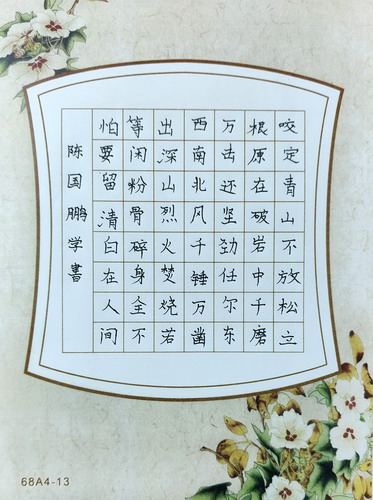 咬定青山不放松立
根原在破岩中千磨
万击还坚劲任尔东
西南北风千锤万凿
出深山烈火焚烧若
等闲粉骨碎身全不
怕要留清白在人间
陈国鹏学書
68A4-13